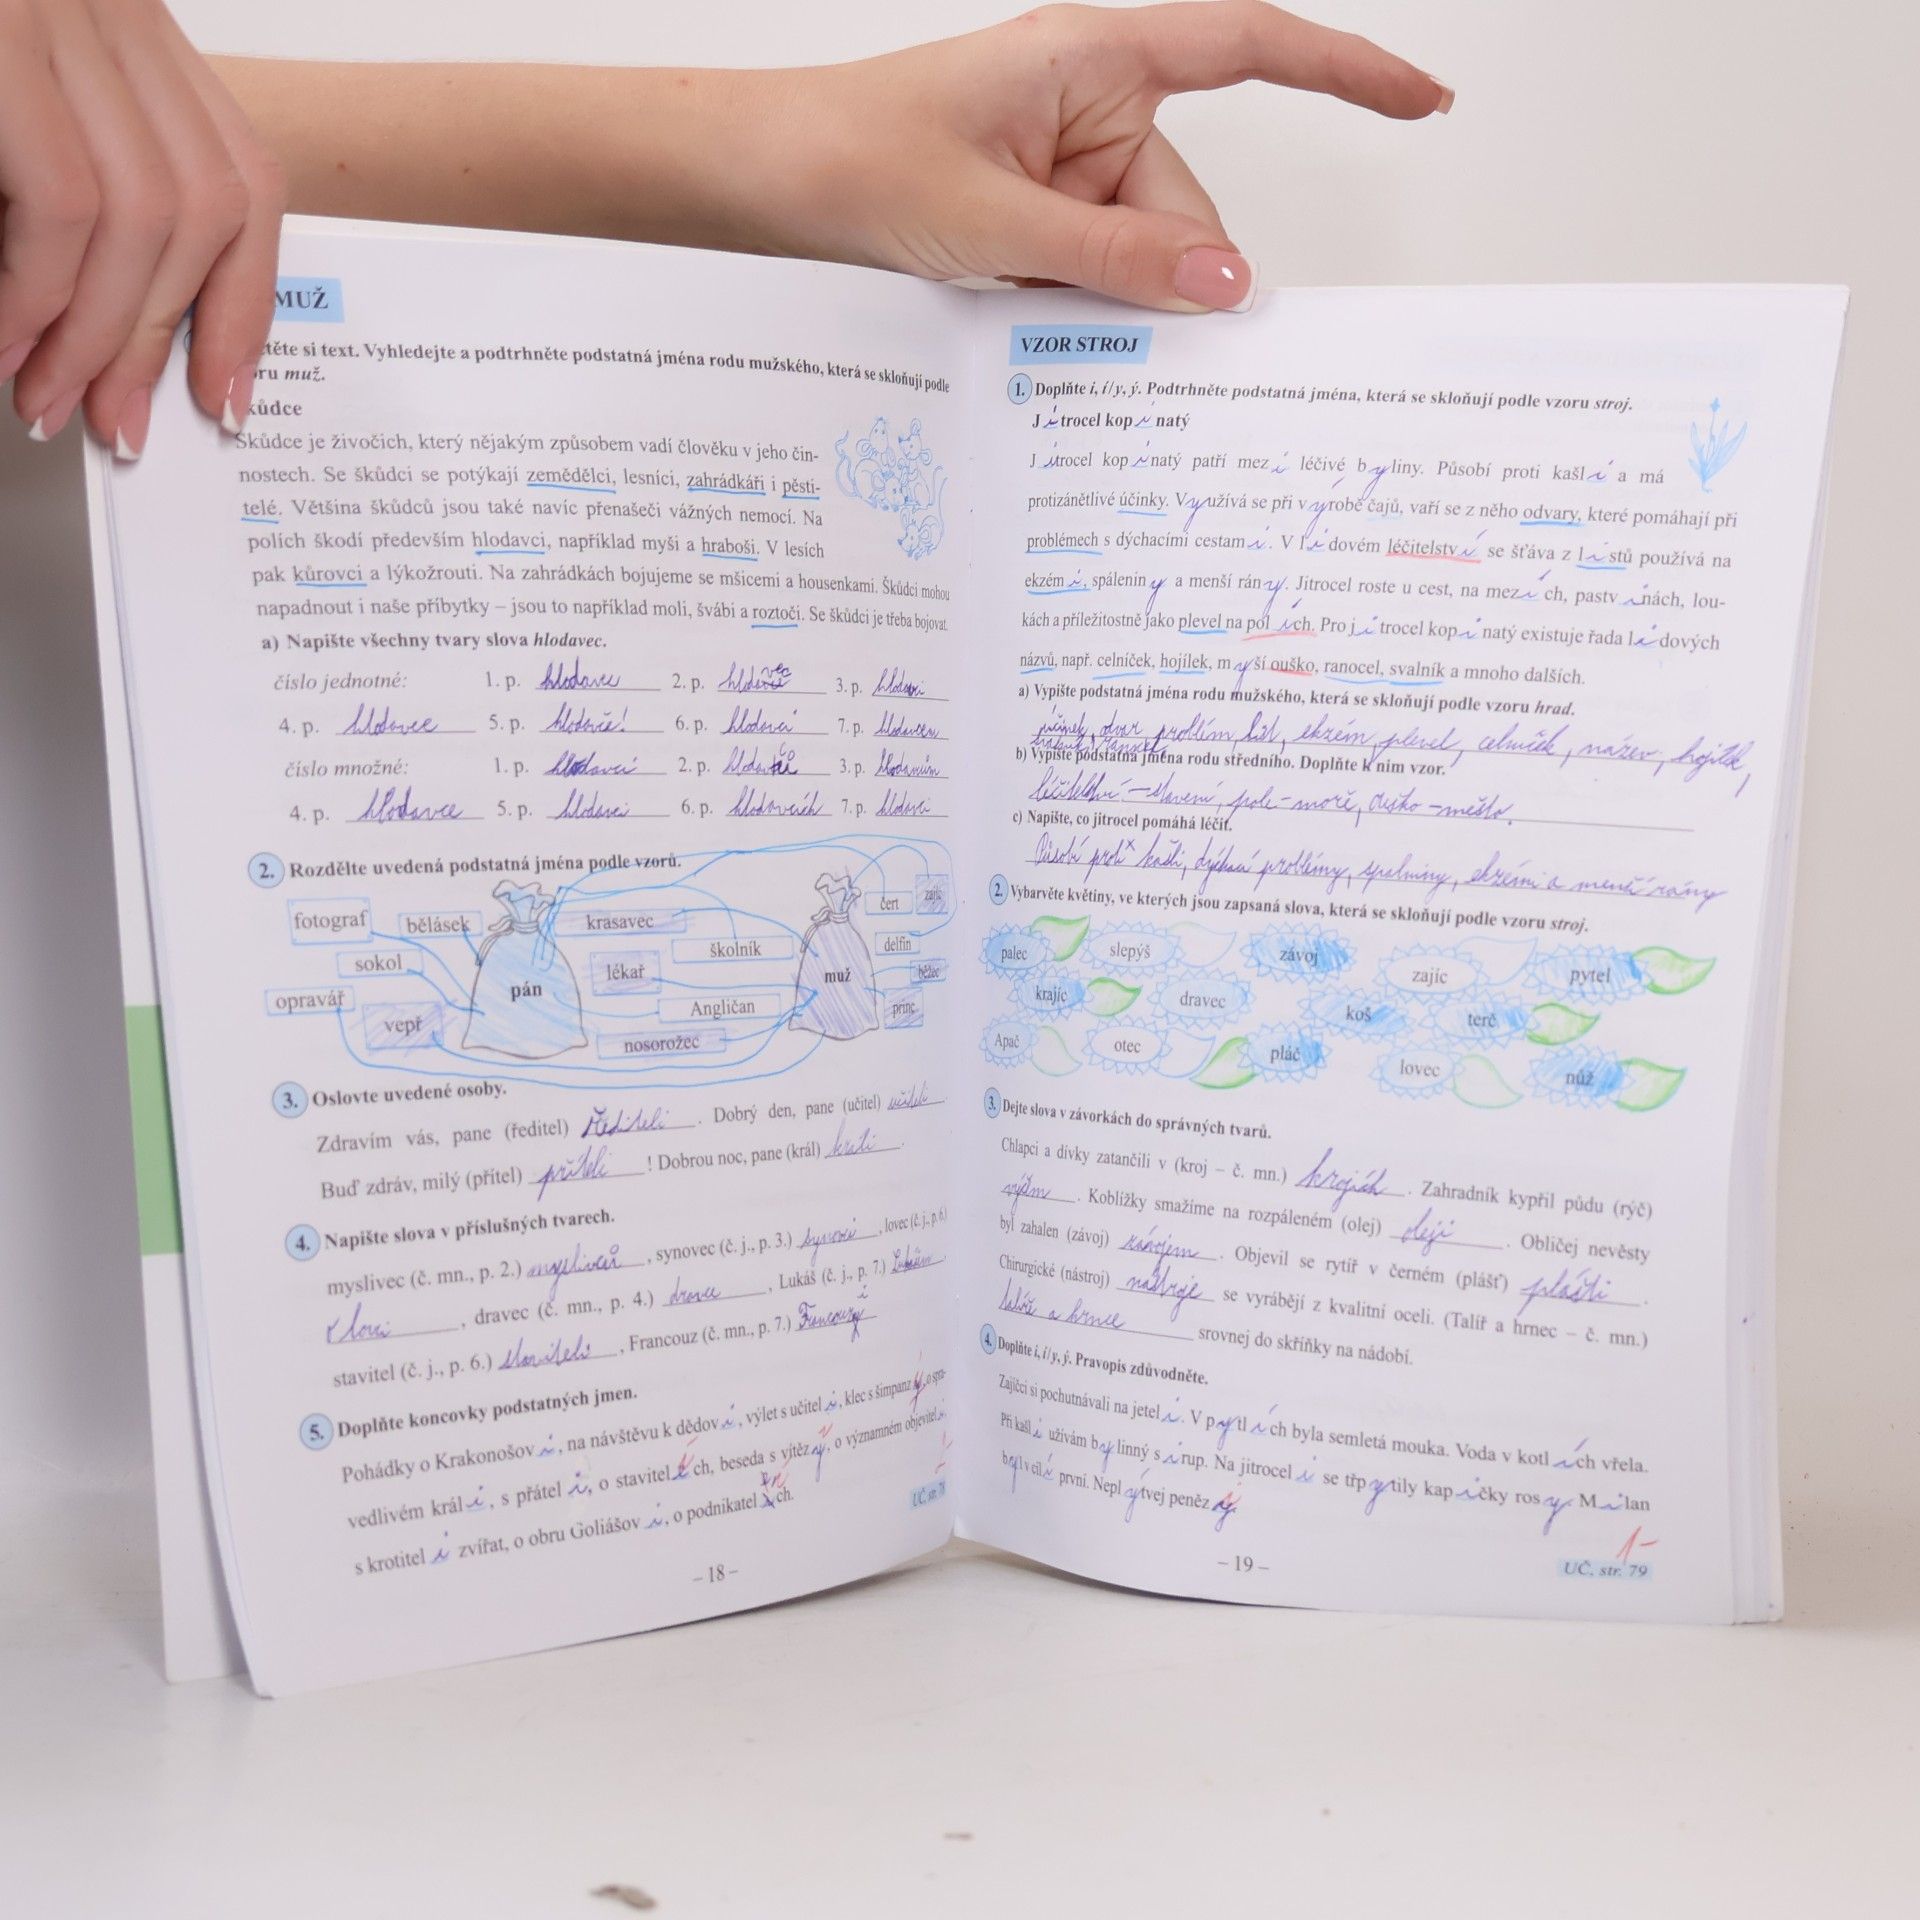 MUŽ
těte si text. Vyhledejte a podtrhněte podstatná jména rodu mužského, která se skloňují podle
oru muž.
kůdce
Škůdce je živočich, který nějakým způsobem vadí člověku v jeho čin-
nostech. Se škůdci se potýkají zemědělci, lesníci, zahrádkáři i pěsti-
telé. Většina škůdců jsou také navíc přenašeči vážných nemocí. Na
polích škodí především hlodavci, například myši a hraboši. V lesích
pak kůrovci a lýkožrouti. Na zahrádkách bojujeme se mšicemi a housenkami. Škůdci mohou
napadnout i naše příbytky – jsou to například moli, švábi a roztoči. Se škůdci je třeba bojovat.
a) Napište všechny tvary slova hlodavec.
číslo jednotné: 1. p. hlodavec 2. p. 3. p. hlodavci
4. p. hlodavce 5. p. hlodavče! 6. p. hlodavci 7. p. hlodavcem
číslo množné: 1. p. hlodavci 2. p. hlodavců 3. p. hlodavcům
4. p. hlodavce 5. p. hlodavci 6. p. hlodavcích 7. p. hlodavci
2. Rozdělte uvedená podstatná jména podle vzorů.
fotograf bělásek krasavec čert zajíc
sokol školník delfín
opravář pán lékař muž běžec
vepř Angličan princ
nosorožec
3. Oslovte uvedené osoby.
Zdravím vás, pane (ředitel) řediteli. Dobrý den, pane (učitel) učiteli.
Buď zdráv, milý (přítel) příteli! Dobrou noc, pane (král) králi.
4. Napište slova v příslušných tvarech.
myslivec (č. mn., p. 2.) myslivců, synovec (č. j., p. 3.) synovci, lovec (č. j., p. 6.)
lovci, dravec (č. mn., p. 4.) dravce, Lukáš (č. j., p. 7.) Lukášem
stavitel (č. j., p. 6.) staviteli, Francouz (č. mn., p. 7.) Francouzi
5. Doplňte koncovky podstatných jmen.
Pohádky o Krakonošovi, na návštěvu k dědovi, výlet s učiteli, klec s šimpanzy, o spra-
vedlivém králi, s přáteli, o stavitelích, beseda s vítězy, o významném objeviteli
s krotiteli zvířat, o obru Goliášovi, o podnikatelích.
UČ. str. 78
– 18 –
VZOR STROJ
1. Doplňte i, í/y, ý. Podtrhněte podstatná jména, která se skloňují podle vzoru stroj.
Jitrocel kopinatý
Jitrocel kopinatý patří mezi léčivé byliny. Působí proti kašli a má
protizánětlivé účinky. Využívá se při výrobě čajů, vaří se z něho odvary, které pomáhají při
problémech s dýchacími cestami. V lidovém léčitelství se šťáva z listů používá na
ekzémi, spáleniny a menší rány. Jitrocel roste u cest, na mezích, pastvinách, lou-
kách a příležitostně jako plevel na polích. Pro jitrocel kopinatý existuje řada lidových
názvů, např. celníček, hojílek, myší ouško, ranocel, svalník a mnoho dalších.
a) Vypište podstatná jména rodu mužského, která se skloňují podle vzoru hrad.
účinek, odvar, problém, list, ekzém, plevel, celníček, název, hojílek,
svalník, ranocel
b) Vypište podstatná jména rodu středního. Doplňte k nim vzor.
léčitelství – stavení, pole – moře, ouško – město.
c) Napište, co jitrocel pomáhá léčit.
Působí proti kašli, dýchací problémy, spáleniny, ekzémi a menší rány
2. Vybarvěte květiny, ve kterých jsou zapsaná slova, která se skloňují podle vzoru stroj.
palec slepýš závoj zajíc pytel
krajíc dravec koš terč
Apač otec pláč lovec nůž
3. Dejte slova v závorkách do správných tvarů.
Chlapci a dívky zatančili v (kroj – č. mn.) krojích. Zahradník kypřil půdu (rýč)
rýčem. Koblížky smažíme na rozpáleném (olej) oleji. Obličej nevěsty
byl zahalen (závoj) závojem. Objevil se rytíř v černém (plášť) plášti.
Chirurgické (nástroj) nástroje se vyrábějí z kvalitní oceli. (Talíř a hrnec – č. mn.)
talíře a hrnce srovnej do skříňky na nádobí.
4. Doplňte i, í/y, ý. Pravopis zdůvodněte.
Zajíčci si pochutnávali na jeteli. V pytlích byla semletá mouka. Voda v kotlích vřela.
Při kašli užívám bylinný sirup. Na jitroceli se třpytily kapičky rosy. Milan
byl v cíli první. Neplýtvej penězi.
1-
– 19 –
UČ. str. 79